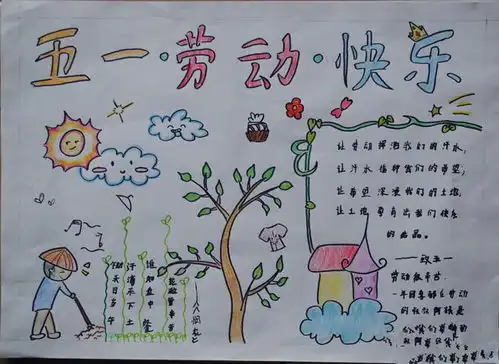 五一·劳动·快乐
让劳动挥洒我们的汗水,
让汗水播种我们的希望;
让希望浸透我们的土地,
让土地孕育出我们快乐
的
劳动最辛苦
一年四季都在劳动
的叔叔阿姨是
锄禾日当午
汗滴禾下土
谁知盘中餐
粒粒皆辛苦